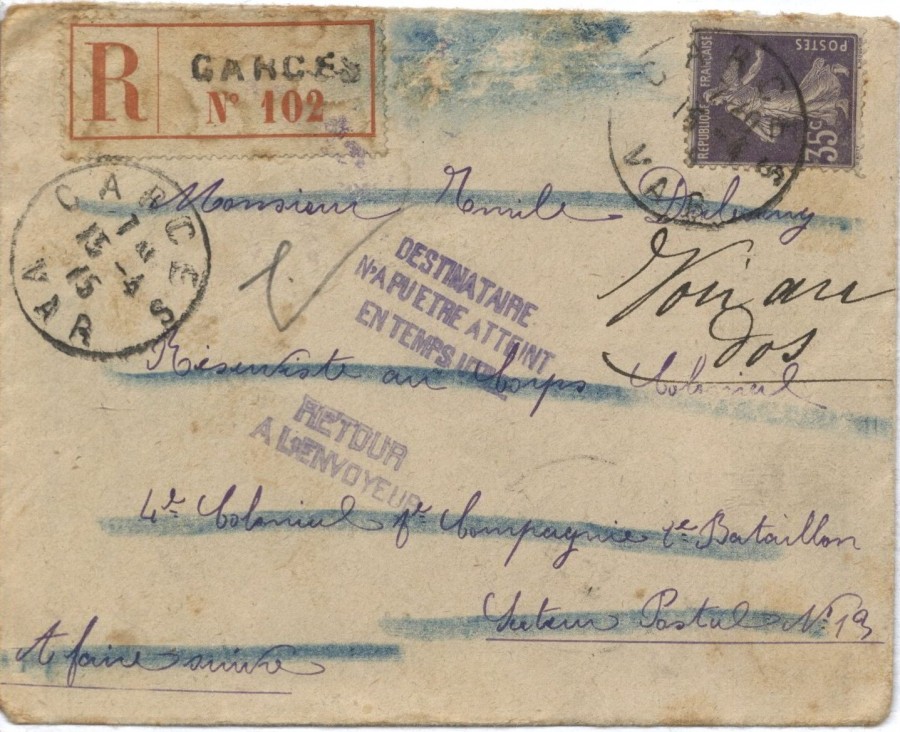 R CARCES
Nº 102
POSTES
REPUBLIQUE FRANÇAISE
35c
CARCES
15 -4
15
VAR
VAR
Monsieur Emile
DESTINATAIRE
N'A PU ETRE ATTEINT
EN TEMPS UTILE
Voir au
dos
Réserviste au Corps Colonial
RETOUR
A L'ENVOYEUR
4e Colonial Compagnie Bataillon
Secteur Postal Nº 19
A faire suivre